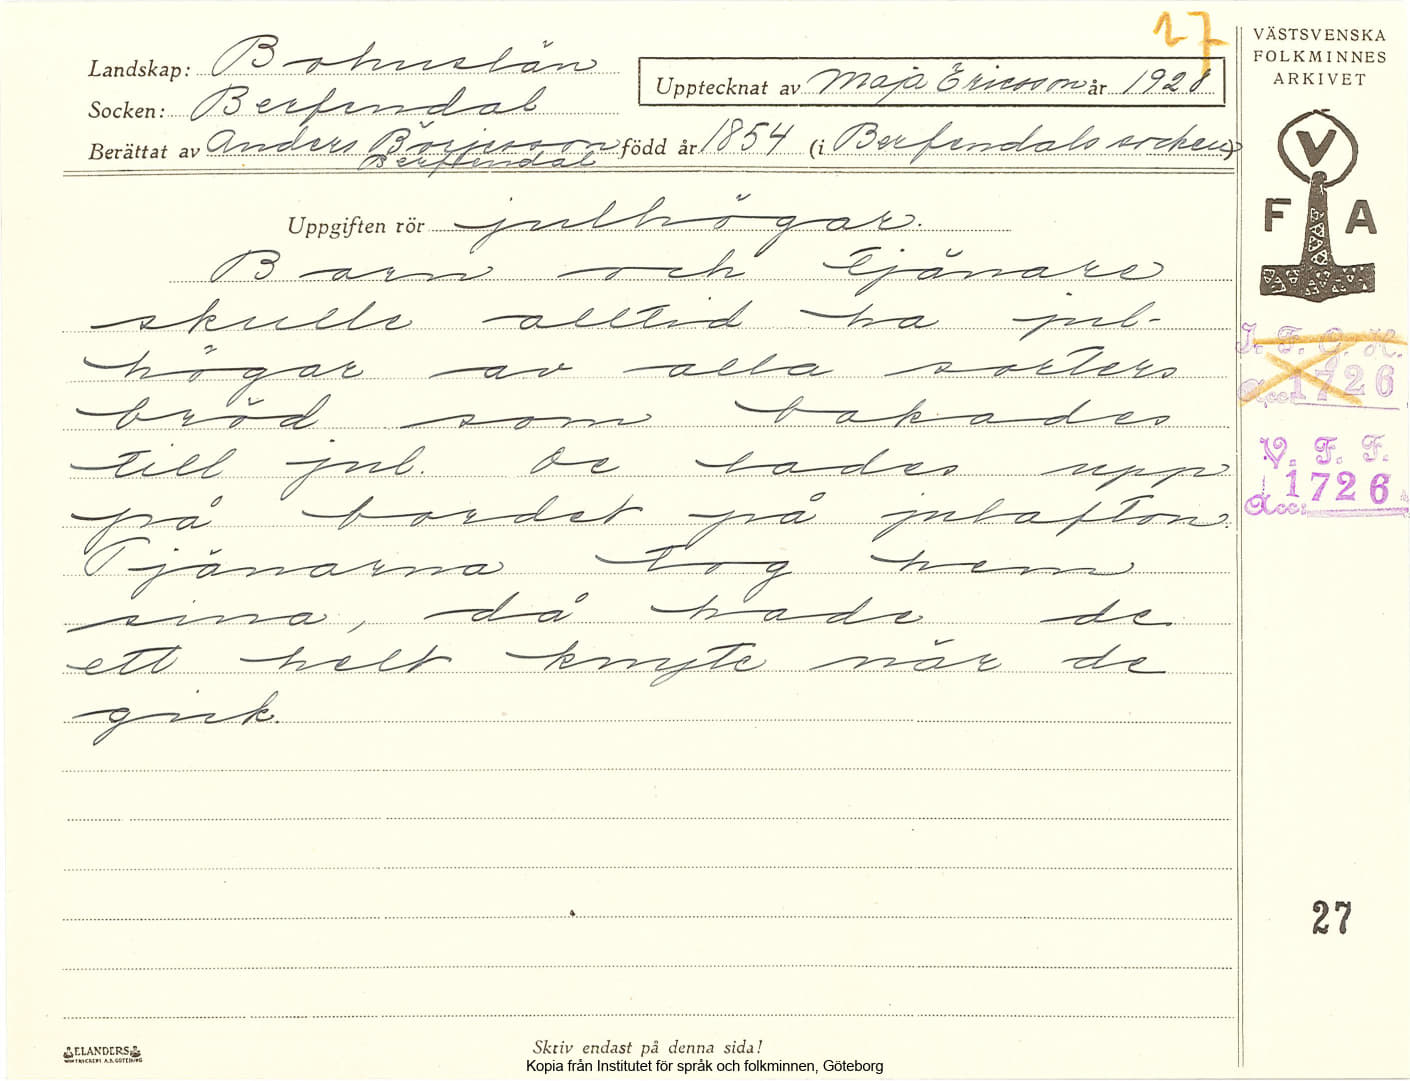 27
VÄSTSVENSKA
FOLKMINNES
ARKIVET
Landskap: Bohuslän
Upptecknat av Maja Ericsson år 1928
Socken: Berfendal
Berättat av Anders Börjesson född år 1854 (i Berfendals socken)
Berfendal
V
F A
Uppgiften rör julhögar.
Barn och tjänare
skulle alltid ha jul-
högar av alla sorters
bröd som bakades
till jul. De lades upp
på bordet på julafton.
Tjänarna tog hem
sina, då hade de
ett helt knyte när de
gick.
I. F. G. H.
Acc. 1726
V. F. F.
Acc. 1726
27
ELANDERS
Skriv endast på denna sida!
Kopia från Institutet för språk och folkminnen, Göteborg